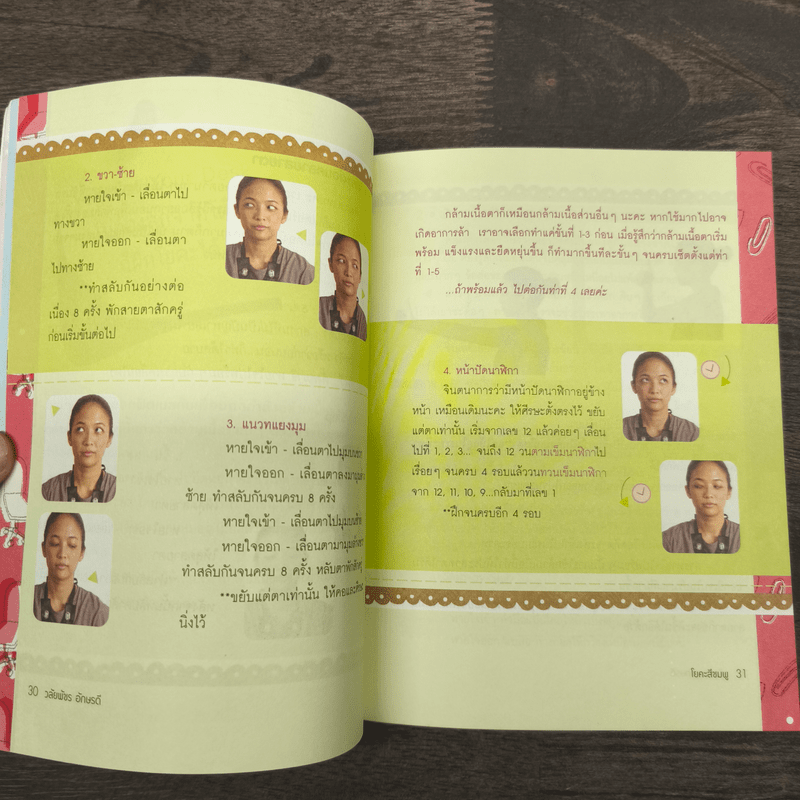 2. ขวา-ซ้าย
หายใจเข้า - เลื่อนตาไป
ทางขวา
หายใจออก - เลื่อนตา
ไปทางซ้าย
**ทำสลับกันอย่างต่อ
เนื่อง 8 ครั้ง พักสายตาสักครู่
ก่อนเริ่มขั้นต่อไป
3. แนวทแยงมุม
หายใจเข้า - เลื่อนตาไปมุมบนขวา
หายใจออก - เลื่อนตาลงมามุมล่าง
ซ้าย ทำสลับกันจนครบ 8 ครั้ง
หายใจเข้า - เลื่อนตาไปมุมบนซ้าย
หายใจออก - เลื่อนตามามุมล่างขวา
ทำสลับกันจนครบ 8 ครั้ง หลับตาพักสักครู่
**ขยับแต่ตาเท่านั้น ให้คอและศีรษะ
นิ่งไว้
30 วลัยพัชร อักษรดี
กล้ามเนื้อตาก็เหมือนกล้ามเนื้อส่วนอื่นๆ นะคะ หากใช้มากไปอาจ
เกิดอาการล้า เราอาจเลือกทำแค่ขั้นที่ 1-3 ก่อน เมื่อรู้สึกว่ากล้ามเนื้อตาเริ่ม
พร้อม แข็งแรงและยืดหยุ่นขึ้น ก็ทำมากขึ้นทีละขั้นๆ จนครบเซ็ตตั้งแต่ท่า
ที่ 1-5
...ถ้าพร้อมแล้ว ไปต่อกันท่าที่ 4 เลยค่ะ
4. หน้าปัดนาฬิกา
จินตนาการว่ามีหน้าปัดนาฬิกาอยู่ข้าง
หน้า เหมือนเดิมนะคะ ให้ศีรษะตั้งตรงไว้ ขยับ
แต่ตาเท่านั้น เริ่มจากเลข 12 แล้วค่อยๆ เลื่อน
ไปที่ 1, 2, 3... จนถึง 12 วนตามเข็มนาฬิกาไป
เรื่อยๆ จนครบ 4 รอบแล้ววนทวนเข็มนาฬิกา
จาก 12, 11, 10, 9...กลับมาที่เลข 1
**ฝึกจนครบอีก 4 รอบ
โยคะสีชมพู 31